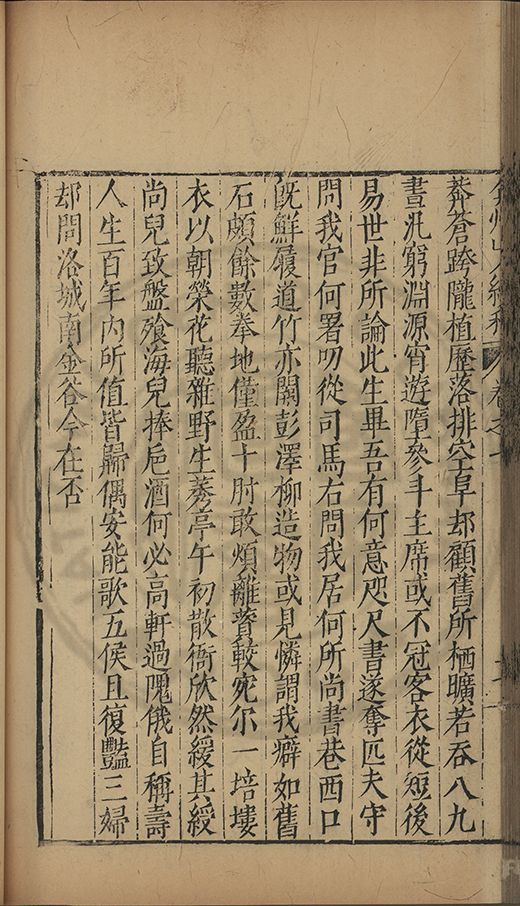 弇州山人續稿卷之
莽蒼跨隴植歷落排空阜却顧舊所栖曠若吞八九
晝汎窮淵源宵遊墮參斗主席或不冠客衣從短後
易世非所論此生畢吾有何意咫尺書遂奪匹夫守
問我官何署叨從司馬右問我居何所尚書巷西口
既鮮履道竹亦闕彭澤柳造物或見憐謂我癖如舊
石頗餘數拳地僅盈十肘敢煩離薋較宛尓一培塿
衣以朝榮花聽雜野生蔞亭午初散衙欣然緩其綬
尚兒致盤飧海兒捧巵酒何必高軒過隗俄自稱壽
人生百年內所值皆歸偶安能歌五侯且復豔三婦
却問洛城南金谷今在否